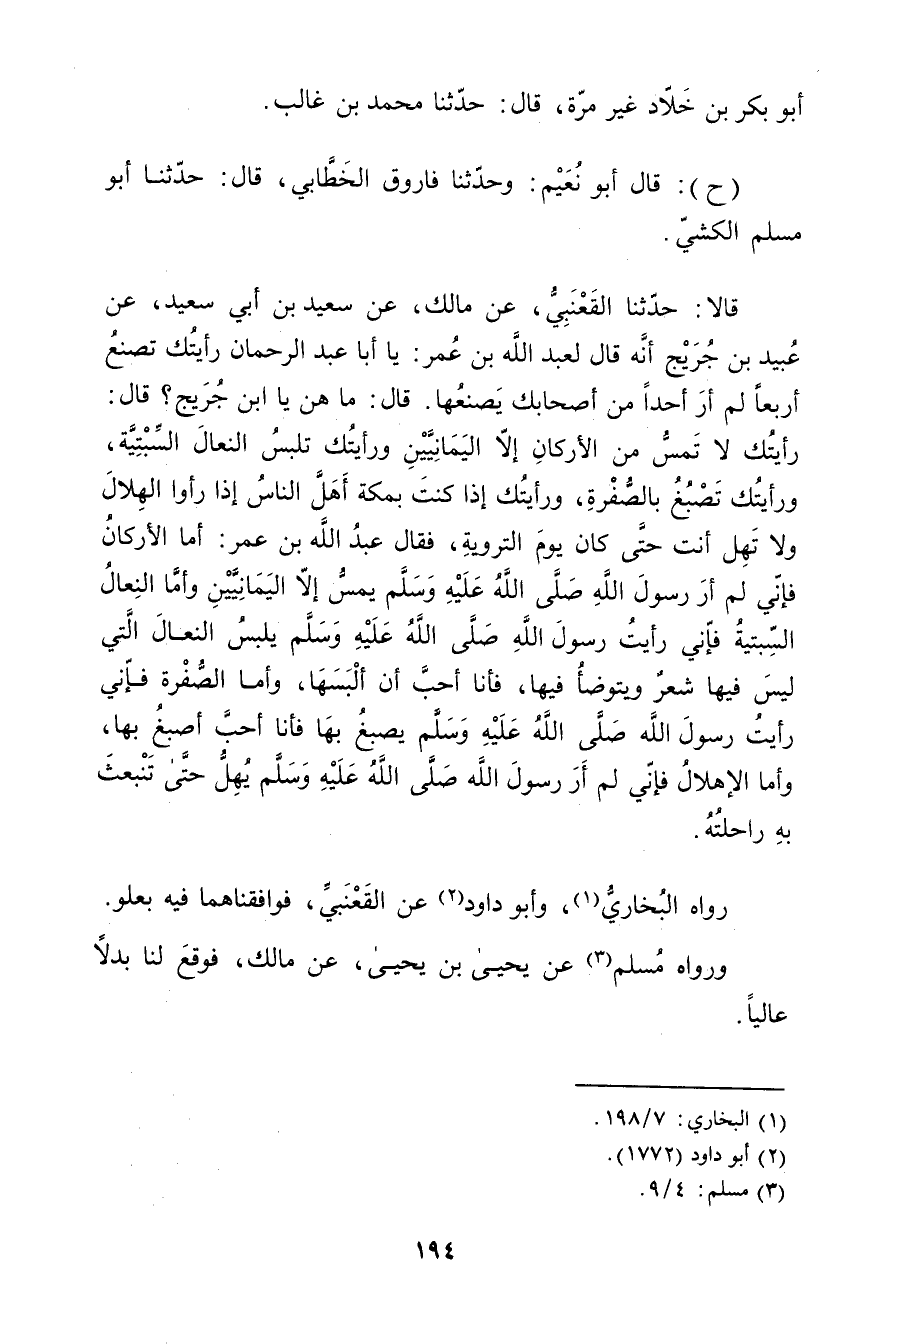 أبو بكر بن خَلّاد غير مرّة، قال: حدّثنا محمد بن غالب.
(ح): قال أبو نُعَيْم: وحدّثنا فاروق الخَطَّابي، قال: حدّثنا أبو
مسلم الكشيّ.
قالا: حدّثنا القَعْنَبِيُّ، عن مالك، عن سعيد بن أبي سعيد، عن
عُبيد بن جُرَيْج أنَّه قال لعبد اللَّه بن عُمر: يا أبا عبد الرحمان رأيتُك تصنعُ
أربعاً لم أرَ أحداً من أصحابك يَصنعُها. قال: ما هن يا ابن جُرَيج؟ قال:
رأيتُك لا تَمسُّ من الأركانِ إلّا اليَمَانِيَّيْنِ ورأيتُك تلبسُ النعالَ السِّبْتِيَّة،
ورأيتُك تَصْبُغُ بالصُّفْرةِ، ورأيتُك إذا كنتَ بمكة أَهَلَّ الناسُ إذا رأوا الهِلالَ
ولا تَهِل أنت حتَّى كان يومَ الترويةِ، فقال عبدُ اللَّه بن عمر: أما الأركانُ
فإنّي لم أرَ رسولَ اللَّهِ صَلَّى اللَّهُ عَلَيْهِ وَسَلَّم يمسُّ إلّا اليَمَانِيَّيْنِ وأمَّا النِعالُ
السِّبتيةُ فإّني رأيتُ رسولَ اللَّهِ صَلَّى اللَّهُ عَلَيْهِ وَسَلَّم يلبسُ النعالَ الَّتي
ليسَ فيها شعرٌ ويتوضأُ فيها، فأنا أحبَّ أن ألْبَسَهَا، وأما الصُّفْرة فإّني
رأيتُ رسولَ اللَّه صَلَّى اللَّهُ عَلَيْهِ وَسَلَّم يصبغُ بهَا فأنا أحبَّ أصبغُ بها،
وأما الإهلالُ فإنّي لم أَرَ رسولَ اللَّه صَلَّى اللَّهُ عَلَيْهِ وَسَلَّم يُهِلُّ حتَّىٰ تَنْبعثَ
بهِ راحلتُهُ.
رواه البُخاريُّ(١)، وأبو داود(٢) عن القَعْنَبيِّ، فوافقناهما فيه بعلو.
ورواه مُسلم(٣) عن يحيىٰ بن يحيىٰ، عن مالك، فوقعَ لنا بدلاً
عالياً.
(١) البخاري: ١٩٨/٧.
(٢) أبو داود (١٧٧٢).
(٣) مسلم: ٩/٤.
١٩٤